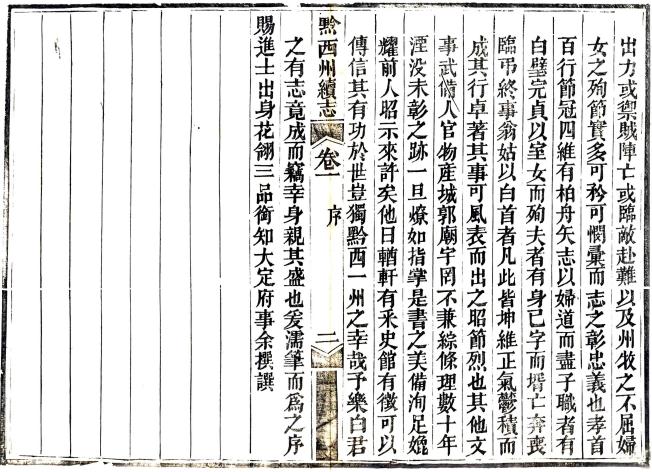 出力或禦賊陣亡或臨敵赴難以及州牧之不屈婦
女之殉節實多可矜可憫彙而志之彰忠義也孝首
百行節冠四維有柏舟矢志以婦道而盡子職者有
白璧完貞以室女而殉夫者有身已字而壻亡奔喪
臨弔終事翁姑以白首者凡此皆坤維正氣鬱積而
成其行卓著其事可風表而出之昭節烈也其他文
事武備人官物產城郭廟宇罔不兼綜條理數十年
湮没未彰之跡一旦燎如指掌是書之美備洵足媲
耀前人昭示來許矣他日輶軒有釆史館有徵可以
傳信其有功於世豈獨黔西一州之幸哉予樂白君
黔西州續志 卷一 序 二
之有志竟成而竊幸身親其盛也爰濡筆而爲之序
賜進士出身花翎三品銜知大定府事余撰譔